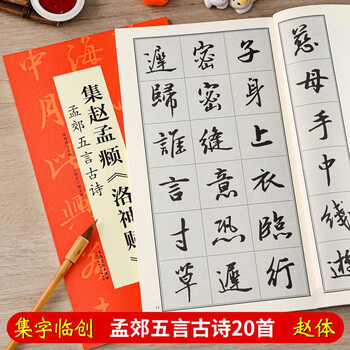 集赵孟頫《洛神赋》
孟郊五言古诗
慈母手中线游
子身上衣臨行
密密縫意恐遲
遲歸誰言寸草
集字临创
孟郊五言古诗20首
赵体